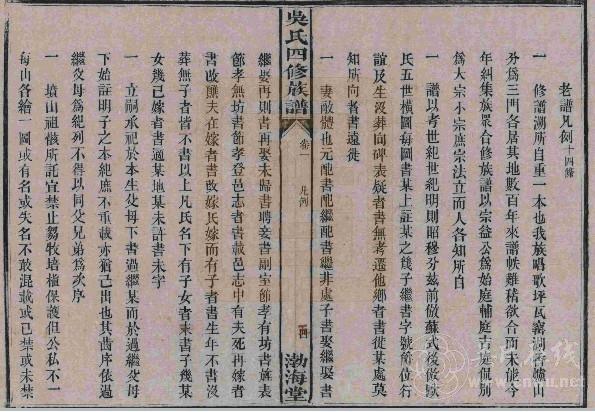 老譜凡例十四條
一　修譜溯所自重一本也我族唱歌坪瓦窰澗
分為三門各居其地數百年來譜帙難稽欲合而未能今
年糾集族眾合修族譜以宗益公為始庭輔庭古庭佩別
為大宗小宗庶宗法立而人各知所自
一　譜以考世紀世紀明則昭穆分茲前倣蘇式後倣歐
氏五世橫圖每圖書某上註某之幾子繼書字號節位行
誼及生沒葬向碑表疑者書無考遷他鄉者書徙某處莫
知所向者書遠徙
一　妻敵體也元配書配繼配書繼非處子書娶繼娶書
吳氏四修族譜
卷一　凡例
渤海堂
繼娶再則書再娶未歸書聘妾書副室節孝有坊書旌表
節孝無坊書節孝登邑志者書載邑志中有夫死再嫁者
書改醮夫在嫁者書改嫁氏嫁而有子者書生年不書沒
葬無子者皆不書以上凡氏名下有子女者來書子幾某
女幾已嫁者書適某地某未許書未字
一　立嗣承祀於本生父母下書過繼某而於過繼父母
下始註明子之本紀庶不重載亦猶己出也其齒序依過
繼父母為紀列不得以同父兄弟為次序
一　墳山祖骸所託宜禁止芻牧培植保護但公私不一
每山各繪一圖或有名或失名不敢混載或已禁或未禁